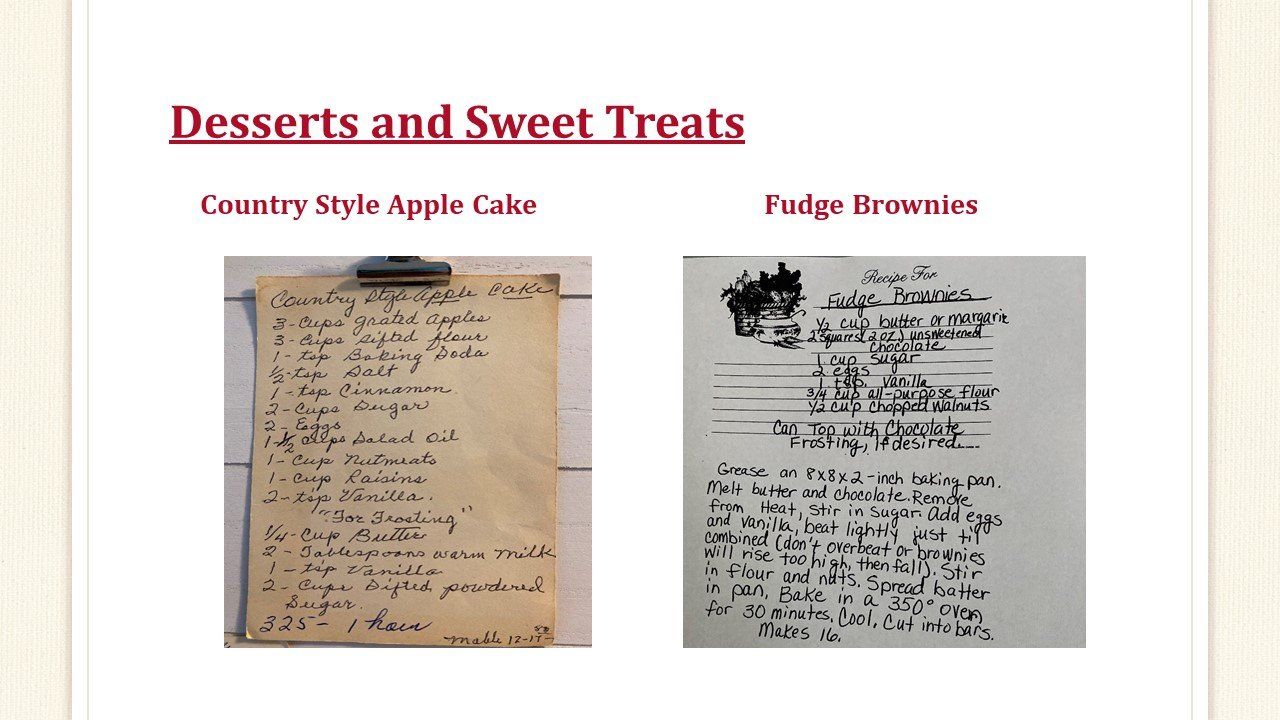 Desserts and Sweet Treats
Country Style Apple Cake
Country Style Apple Cake
3-Cups grated apples
3-Cups sifted flour
1-tsp Baking Soda
½-tsp Salt
1-tsp Cinnamon
2-Cups Sugar
2-Eggs
1-½ Cups Salad Oil
1-Cup Nutmeats
1-Cup Raisins
2-tsp Vanilla.
"For Frosting"
1/4-Cup Butter
2-Tablespoons warm milk
1-tsp Vanilla
2-Cups Sifted powdered
Sugar.
325- 1 hour
Mable 12-17-
Fudge Brownies
Recipe For
Fudge Brownies
½ cup butter or margarine
2 squares (2 oz.) unsweetened
chocolate
1 cup sugar
2 eggs
1 tsp. vanilla
3/4 cup all-purpose flour
½ cup chopped walnuts
Can Top with Chocolate
Frosting, If desired....
Grease an 8x8x2-inch baking pan.
Melt butter and chocolate. Remove
from Heat, stir in sugar. Add eggs
and vanilla, beat lightly just til
combined (don't overbeat or brownies
will rise too high, then fall). Stir
in flour and nuts. Spread batter
in pan, Bake in a 350° oven
for 30 minutes. Cool. Cut into bars.
Makes 16.